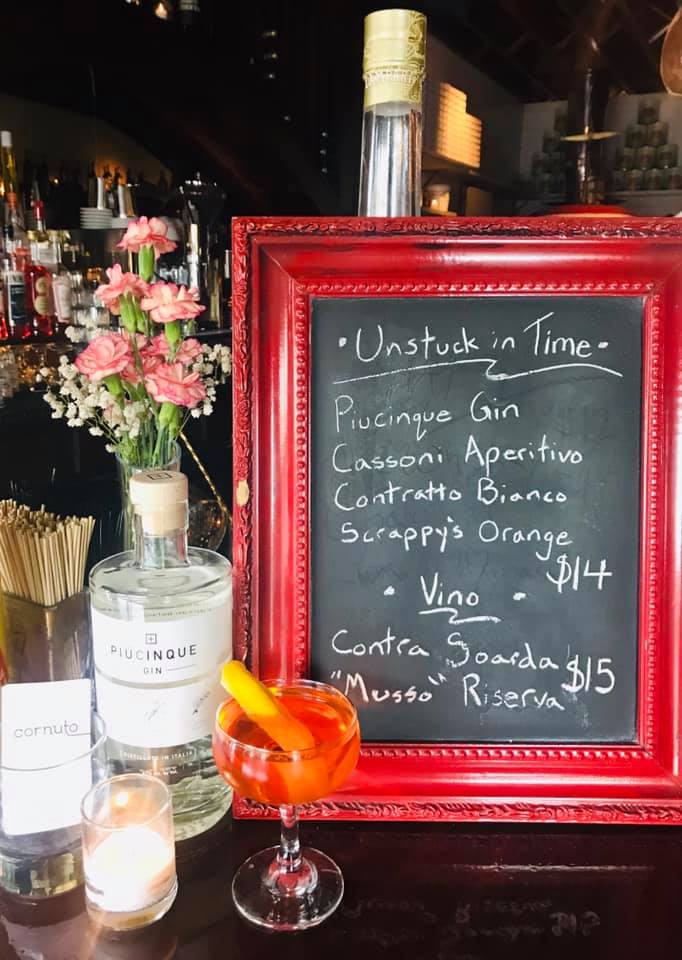 CAMPARI
• Unstuck in Time •
Piucinque Gin
Cassoni Aperitivo
Contratto Bianco
Scrappy's Orange
$14
• Vino •
Contra Soarda
"Musso" Riserva
$15
PIUCINQUE
GIN
DISTILLED IN ITALIA
cornuto